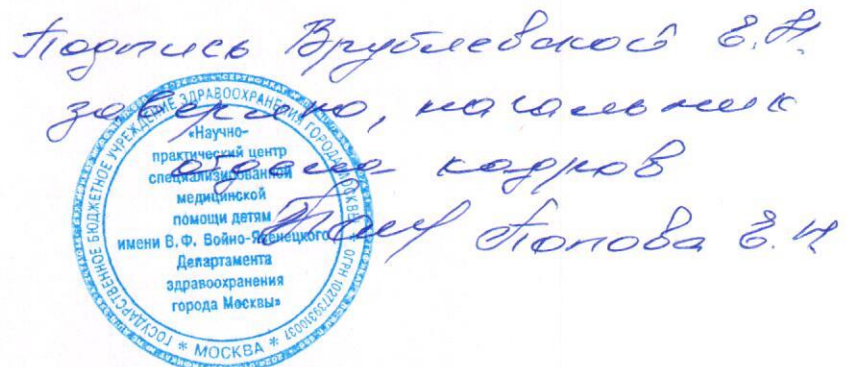 Подпись Врублевской Е.Н.
заверено, начальник
отдела кадров
Попова Е.Н
ГОСУДАРСТВЕННОЕ БЮДЖЕТНОЕ УЧРЕЖДЕНИЕ ЗДРАВООХРАНЕНИЯ ГОРОДА МОСКВЫ * ОГРН 1027739310037
* МОСКВА *
«Научно-
практический центр
специализированной
медицинской
помощи детям
имени В.Ф. Войно-Ясенецкого
Департамента
здравоохранения
города Москвы»